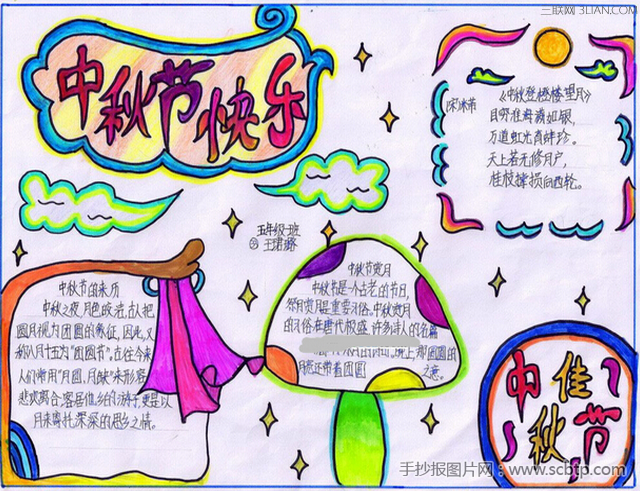 三联网 3LIAN.COM
中秋节快乐
《中秋登楼望月》
宋·米芾
目穷淮海满如银,
万道虹光育蚌珍。
天上若无修月户,
桂枝撑损向西轮。
五年级一班
王
中秋节的来历
中秋之夜,月色皎洁,古人把
圆月视为团圆的象征,因此,又
称八月十五为"团圆节",古往今来
人们常用"月圆、月缺"来形容
悲欢离合,客居他乡的游子,更是以
月来寄托深深的思乡之情。
中秋节赏月
中秋节是一个古艺的节日,
祭月赏月是重要习俗。中秋赏月
的风俗在唐代极盛 许多诗人的名篇
晚上 圆圆的
月亮还带着团圆之意。
中佳
秋节
手抄报图片网:www.scbtp.com